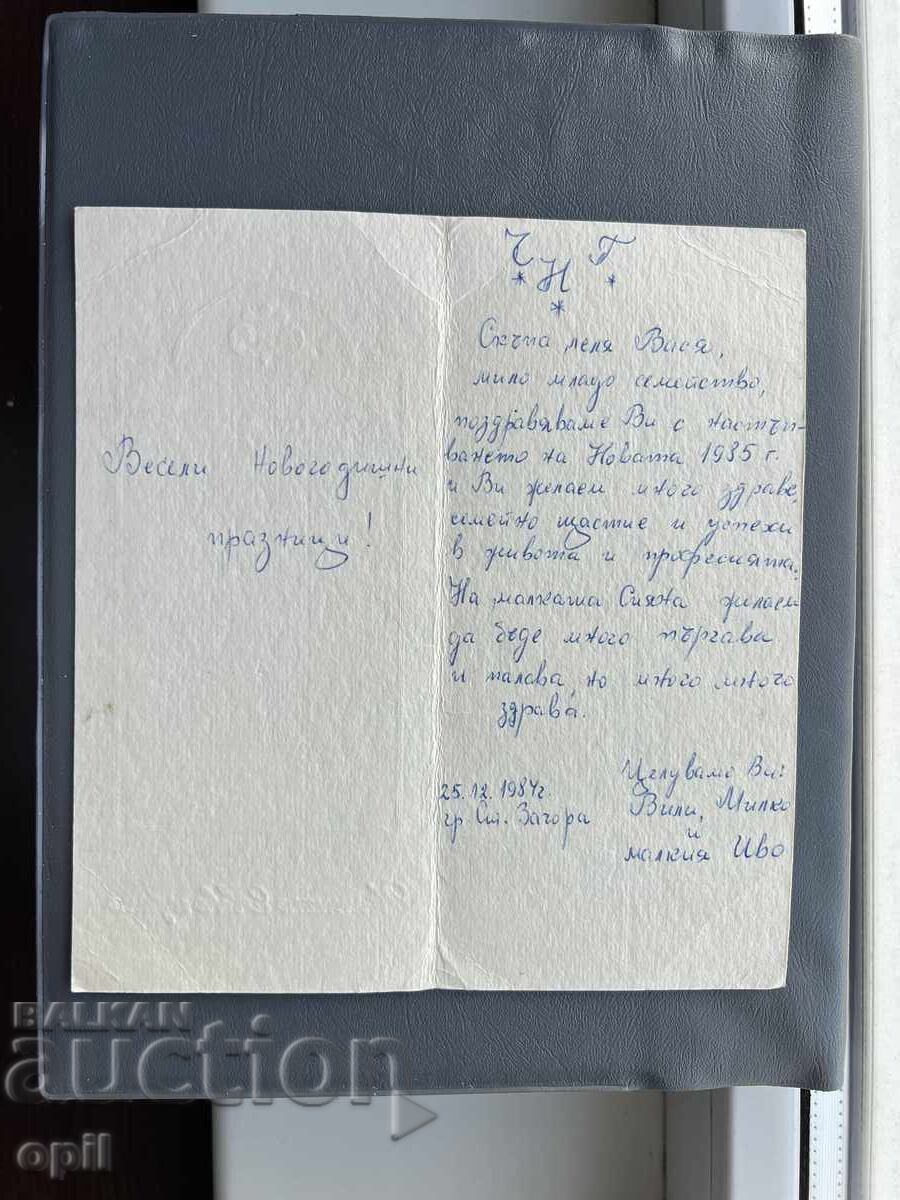 Весели новогодишни
празници!
Ч Н Г
Скъпа леля Вися,
мило младо семейство,
поздравяваме Ви с настъп-
ването на Новата 1985 г.
и Ви желаем много здраве,
семейно щастие и успехи
в живота и професията.
На малката Сияна желаем
да бъде много пъргава
и палава, но много много
здрава.
25.12.1984г.
гр. Ст. Загора
Целуваме Ви:
Вили, Милко
и
малкия Иво
BALKAN
auction
opil